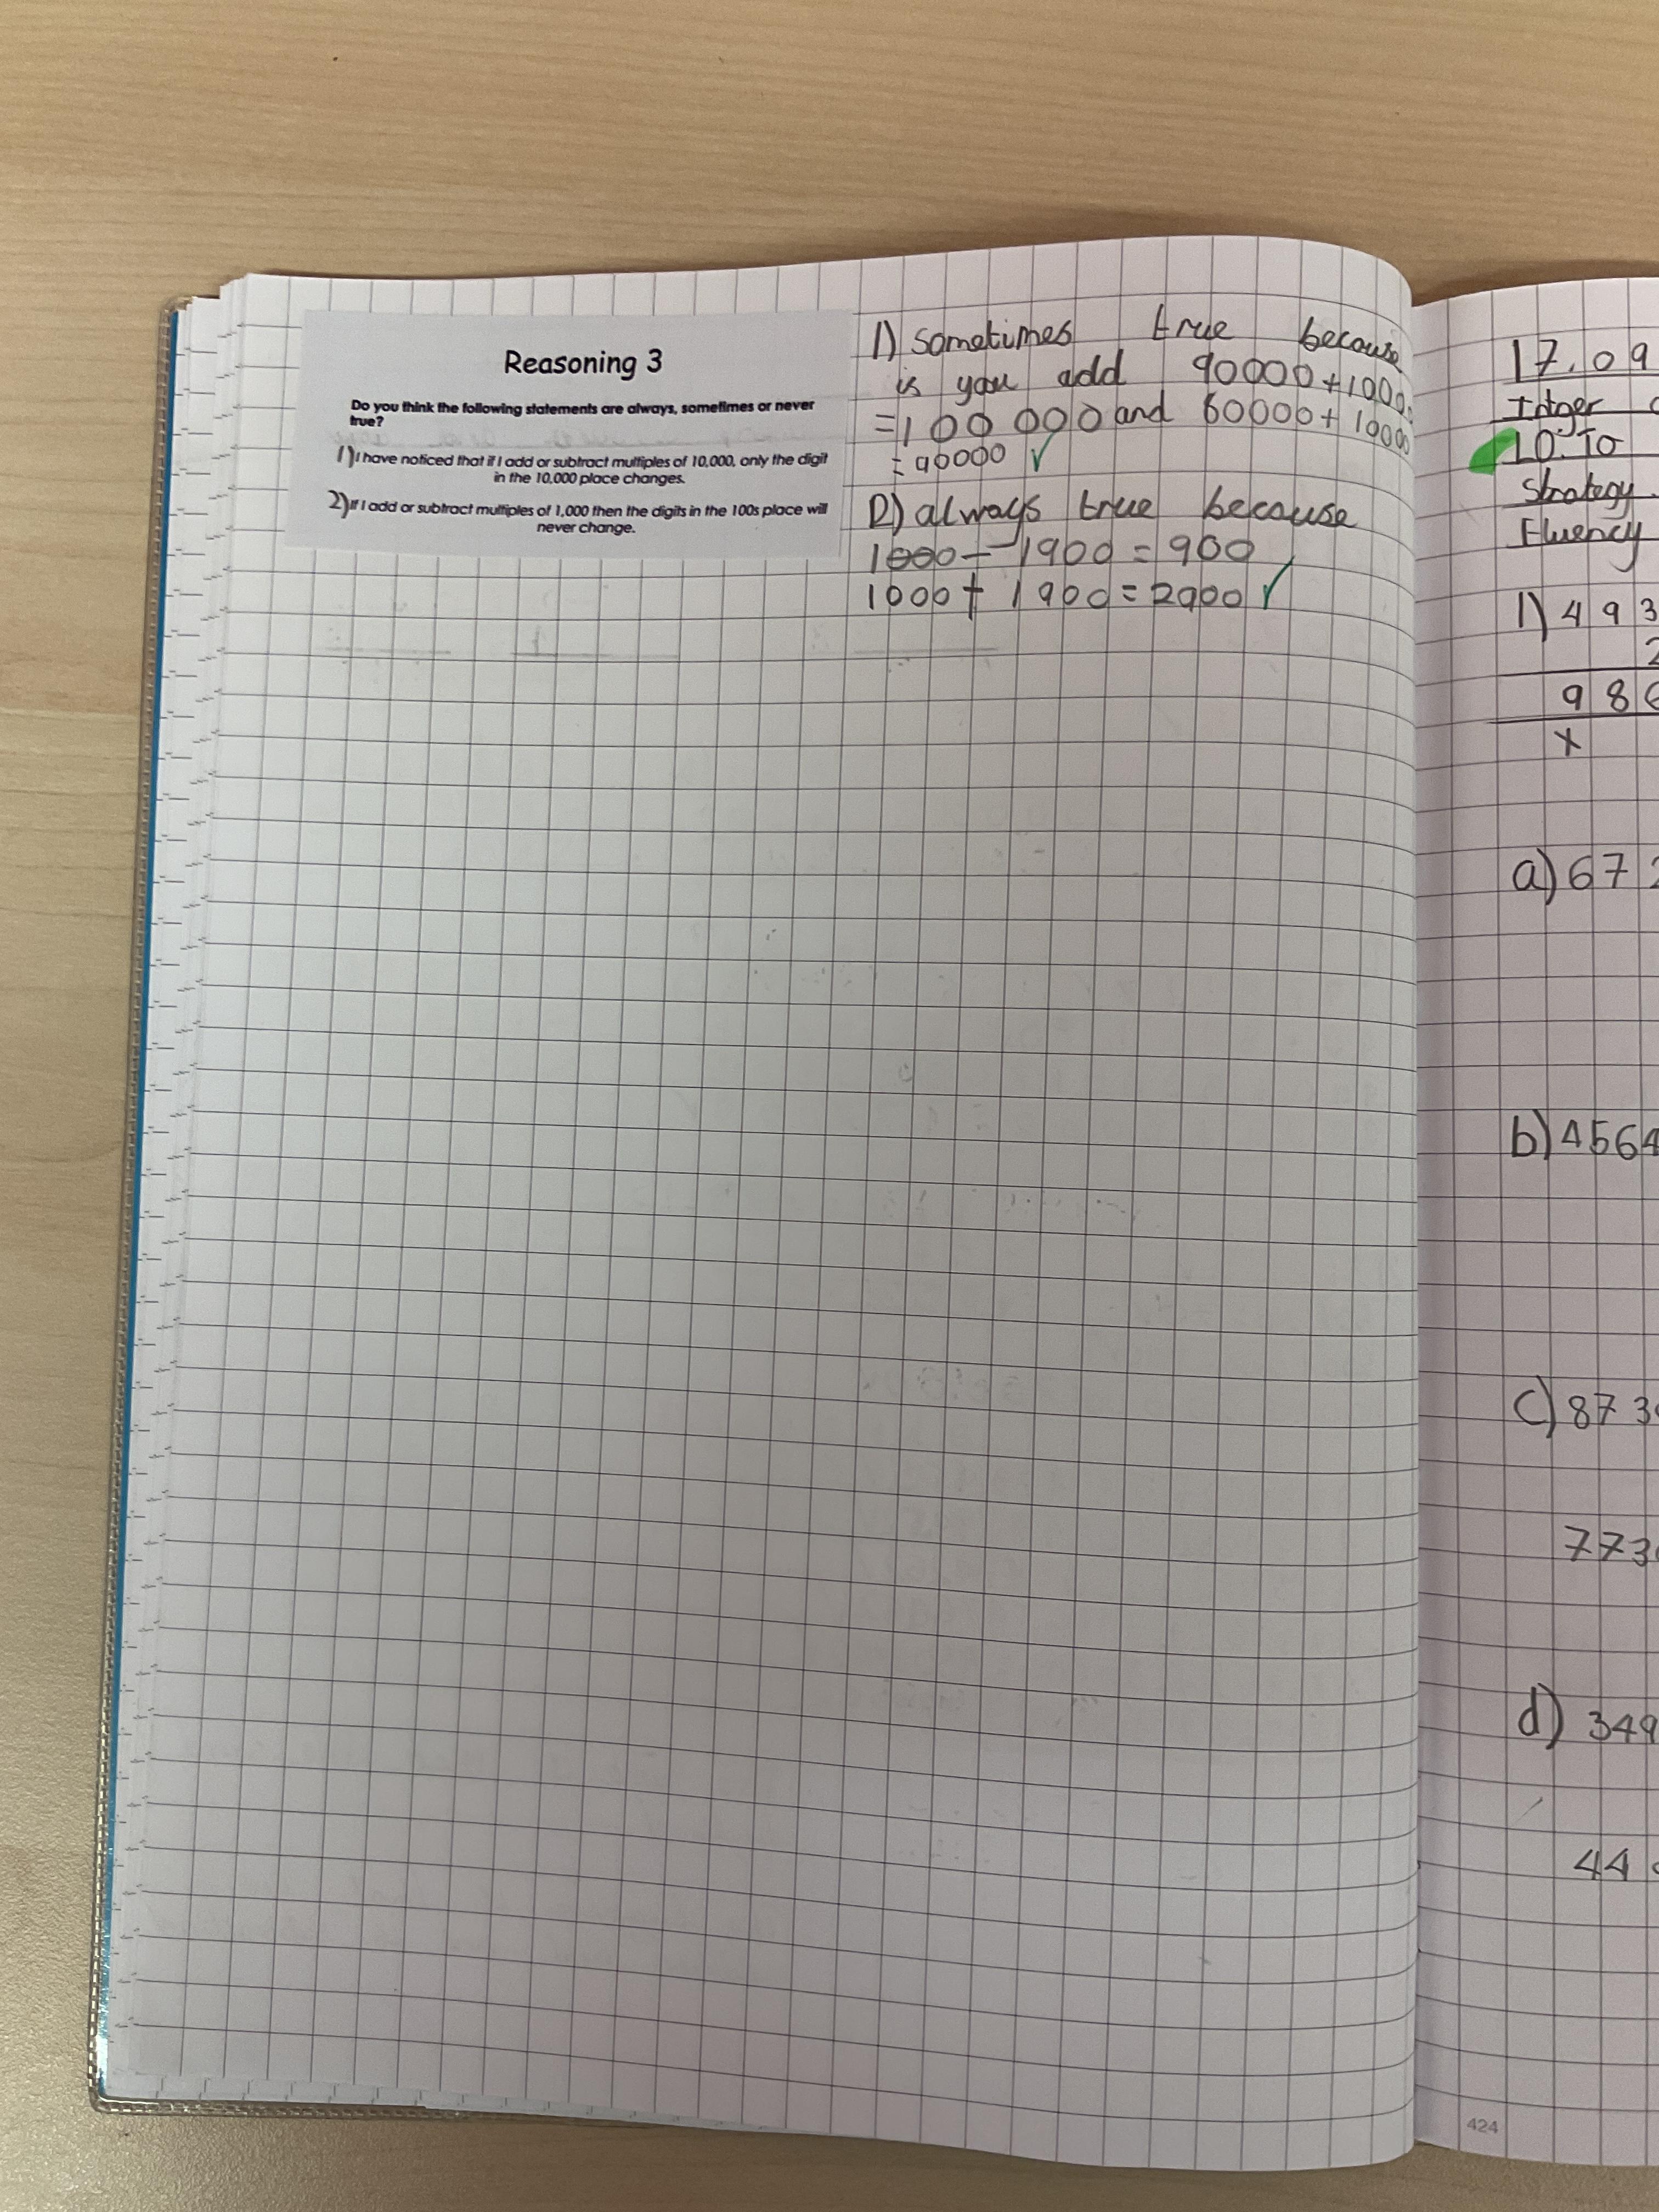 Reasoning 3
Do you think the following statements are always, sometimes or never
true?
1) I have noticed that if I add or subtract multiples of 10,000, only the digit
in the 10,000 place changes.
2) If I add or subtract multiples of 1,000 then the digits in the 100s place will
never change.
1) sometimes true because
is you add 90000 + 1000
= 100 000 and 80000 + 10000
= 90000 ✓
2) always true because
1000 - 1900 = 900
1000 + 1900 = 2900 ✓
17.09
Intger
10. To
Strategy
Fluency
1) 4 9 3
2
9 8 6
x
a) 6 7 2
b) 4564
c) 873
773
d) 349
44
424